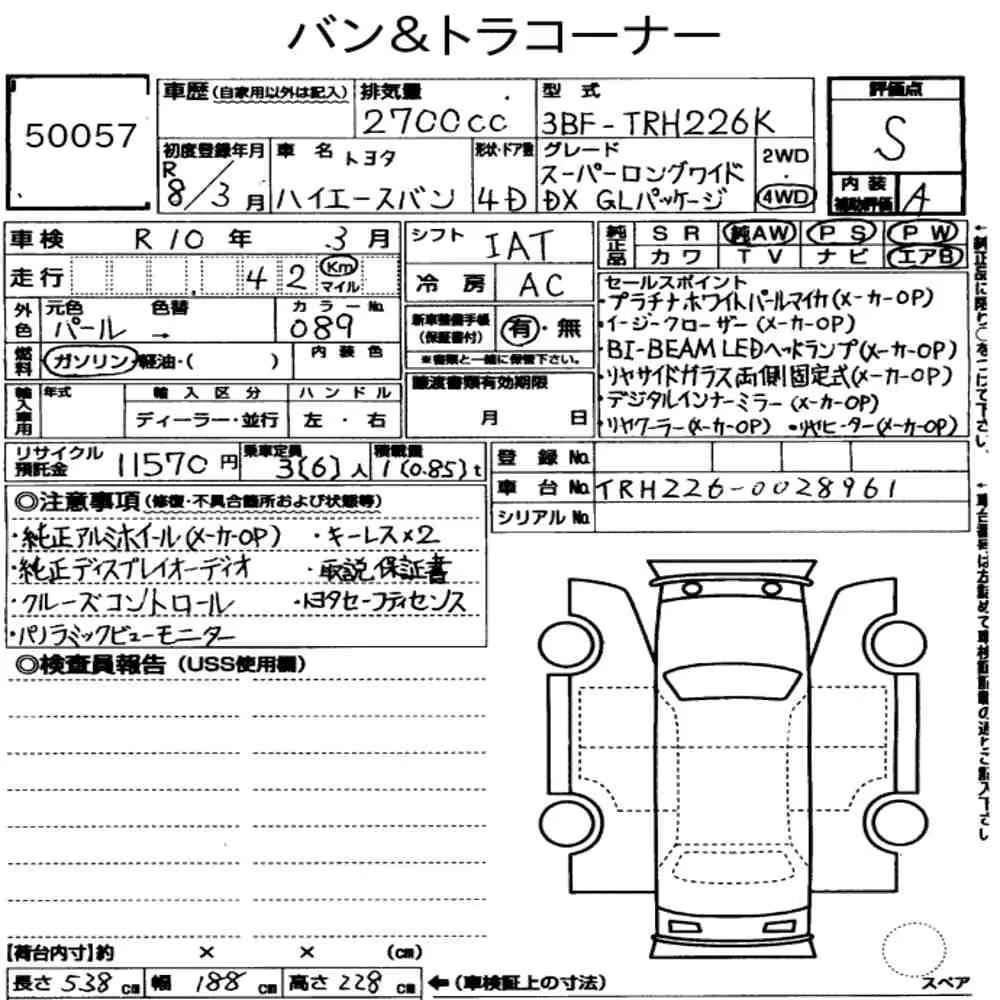 バン&トラコーナー
50057
車歴(自家用以外は記入)
排気量
2700cc
型式
3BF-TRH226K
評価点
S
初度登録年月
R
8/3月
車名
トヨタ
ハイエースバン
形状・ドア数
4D
グレード
スーパーロングワイド
DX GLパッケージ
2WD
・
4WD
内装
補助評価
A
車検 R10年 3月
走行 , 42 Km
マイル
シフト
IAT
冷房
AC
純正品
SR 純AW PS PW
カワ TV ナビ エアB
外色
元色 色替 カラーNo.
パール → 089
燃料
ガソリン・軽油・( )
内装色
新車整備手帳
(保証書付)
有・無
※書類と一緒に保管下さい。
セールスポイント
・プラチナホワイトパールマイカ(メーカーOP)
・イージークローザー(メーカーOP)
・BI-BEAM LEDヘッドランプ(メーカーOP)
・リヤサイドガラス両側固定式(メーカーOP)
・デジタルインナーミラー(メーカーOP)
・リヤクーラー(メーカーOP) ・リヤヒーター(メーカーOP)
輸入車用
年式
輸入区分
ディーラー・並行
ハンドル
左・右
譲渡書類有効期限
月 日
リサイクル
預託金
11570円
乗車定員
3(6)人
積載量
1(0.85)t
登録No.
車台No. TRH226-0028961
シリアルNo.
◎注意事項(修復・不具合箇所および状態等)
・純正アルミホイール(メーカーOP) ・キーレス×2
・純正ディスプレイオーディオ ・取説保証書
・クルーズコントロール ・トヨタセーフティセンス
・パノラミックビューモニター
◎検査員報告(USS使用欄)
【荷台内寸】約 × × (cm)
長さ 538 cm 幅 188 cm 高さ 228 cm ←(車検証上の寸法)
スペア